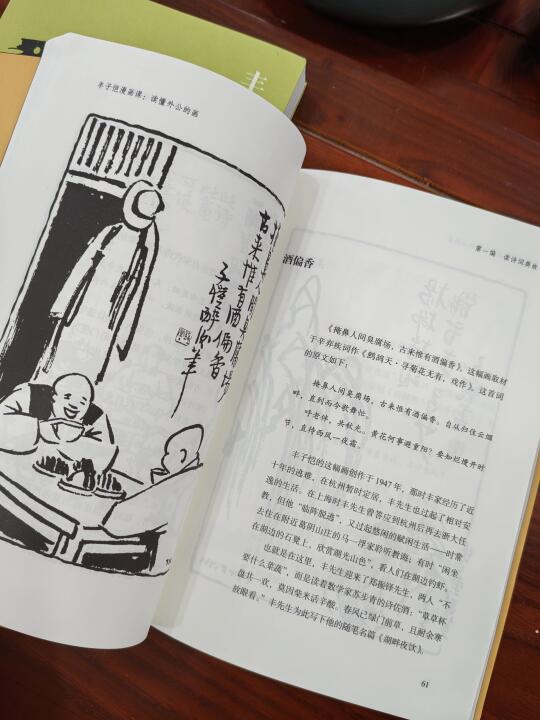 丰
丰子恺漫画课：读懂外公的画
掩鼻人间臭腐场
古来惟有酒偏香
子恺醉后笔
第一编 读诗词画依
酒偏香
《掩鼻人间臭腐场，古来惟有酒偏香》，这幅画取材
于辛弃疾词作《鹧鸪天·寻菊花无有，戏作》。这首词
的原文如下：
掩鼻人间臭腐场，古来惟有酒偏香。自从归住云烟
畔，直到而今歌舞忙。
呼老伴，共秋光。黄花何事避重阳？要知烂熳开时
节，直待西风一夜霜。
丰子恺的这幅画创作于1947年，那时丰家经历了近
十年的逃难，在杭州暂时定居，丰先生也过起了相对安
逸的生活。在上海时丰先生曾答应到杭州后再去浙大任
教，但他“临阵脱逃”，又过起悠闲的赋闲生活——时常
去住在附近葛阴山庄的马一浮家聆听教诲；有时“闲坐
在湖边的石凳上，欣赏湖光山色”，看人们在湖边钓虾。
也就是在这里，丰先生迎来了郑振铎先生，两人“不
要什么菜蔬”，而是读着数学家苏步青的诗佐酒：“草草杯
盘共一欢，莫因柴米话辛酸。春风已绿门前草，且耐余寒
放眼看。”丰先生为此写下他的随笔名篇《湖畔夜饮》。
61